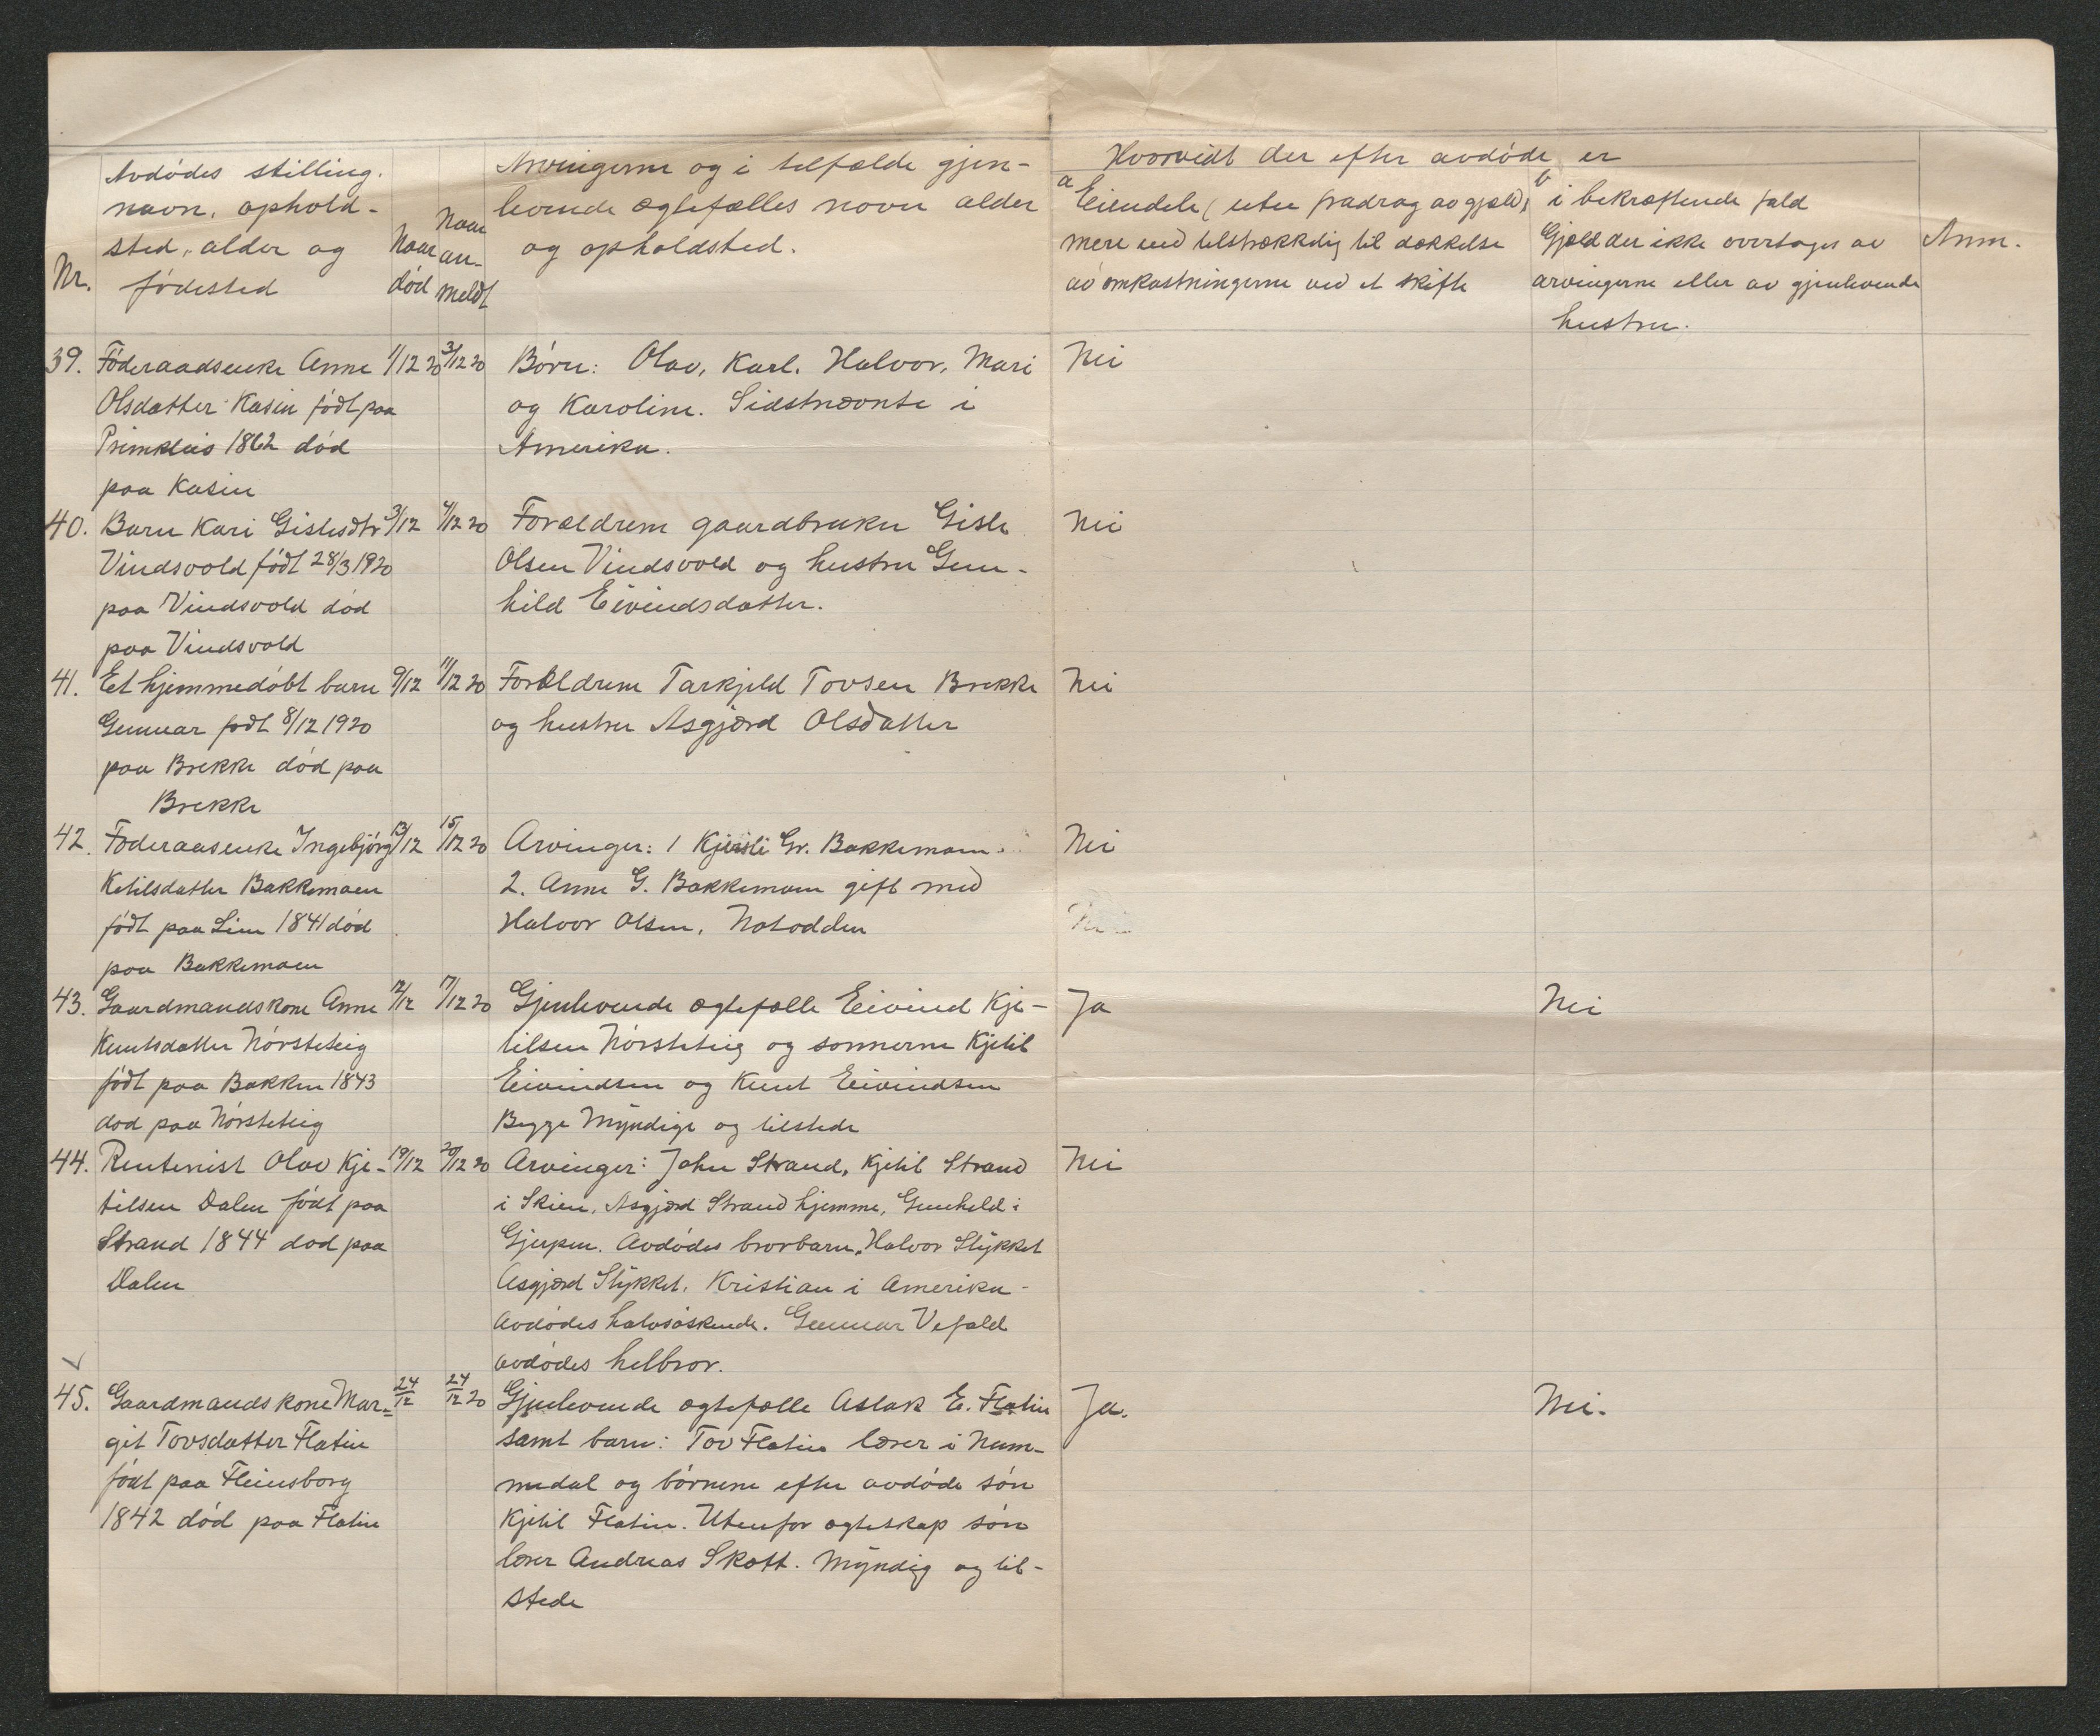 Nr.
Avdødes stilling.
navn, ophold-
sted, alder og
fødested
Naar
død
Naar
an-
meldt
Arvingerne og i tilfælde gjen-
levende ægtefælles navn alder
og opholdsted.
Hvorvidt der efter avdøde er
a Eiendele (uten fradrag av gjæld)
mere end tilstrækkelig til dækkelse
av omkostningerne ved et skifte
b i bekræftende fald
Gjæld der ikke overtages av
arvingerne eller av gjenlevende
hustru.
Anm.
39. Føderaadsenke Anne 1/12 20 3/12 20 Børn: Olav, Karl, Halvor, Mari Nei
Olsdatter Kasin født paa og Karoline. Sidstnævnte i
1862 død Amerika.
paa Kasin
40. Barn Kari Gislesdtr 3/12 4/12 20 Forældrene gaardbruker Gisle Nei
Vindsvold født 28/3 1920 Olsen Vindsvold og hustru Gun-
paa Vindsvold død hild Eivindsdatter.
paa Vindsvold
41. Et hjemmedøbt barn 9/12 11/12 20 Forældrene Tarkjeld Tovsen Brekke Nei
Gunnar født 8/12 1920 og hustru Asgjærd Olsdatter
paa Brekke død paa
Brekke
42. Føderaasenke Ingebjørg 13/12 15/12 20 Arvinger: 1 Kjersti Gr. Bakkemoen. Nei
Ketilsdatter Bakkemoen 2. Anne G. Bakkemoen gift med
født paa Lien 1841 død Halvor Olsen, Notodden
paa Bakkemoen
43. Gaardmandskone Anne 12/12 17/12 20 Gjenlevende ægtefælle Eivind Kje- Ja Nei
Knutsdatter Nørsteteig tilsen Nørsteteig og sønnerne Kjetil
født paa Bakken 1843 Eivindsen og Knut Eivindsen
død paa Nørsteteig Begge Myndige og tilstede
44. Rentenist Olav Kje- 19/12 20/12 20 Arvinger: John Strand, Kjetil Strand Nei
tilsen Dalen født paa i Skien, Asgjærd Strand hjemme, Gunhild i
Strand 1844 død paa Gjerpen. Avdødes brorbarn, Halvor Stykket
Dalen Asgjærd Stykket, Kristian i Amerika -
avdødes halvsøskende. Gunnar Vefald
avdødes helbror.
✓
45. Gaardmandskone Mar= 24/12 24/12 20 Gjenlevende ægtefælle Aslak E. Flatin Ja. Nei.
git Tovsdatter Flatin samt barn: Tov Flatin lærer i Num-
født paa Fleinsborg medal og børnene efter avdøde søn
1842 død paa Flatin Kjetil Flatin. Utenfor ægteskap søn
lærer Andreas Skott. Myndig og til-
stede